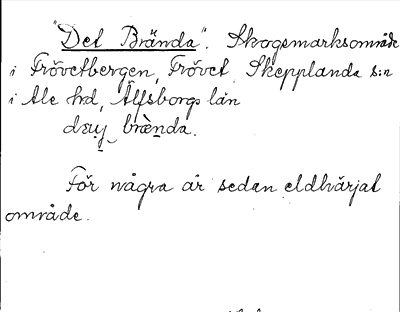 "Det Brända". Skogsmarksområde
i Frövetbergen, Frövet, Skepplanda s:n
i Ale hd, Älfsborgs län
brènda.
För några år sedan eldhärjat
område.